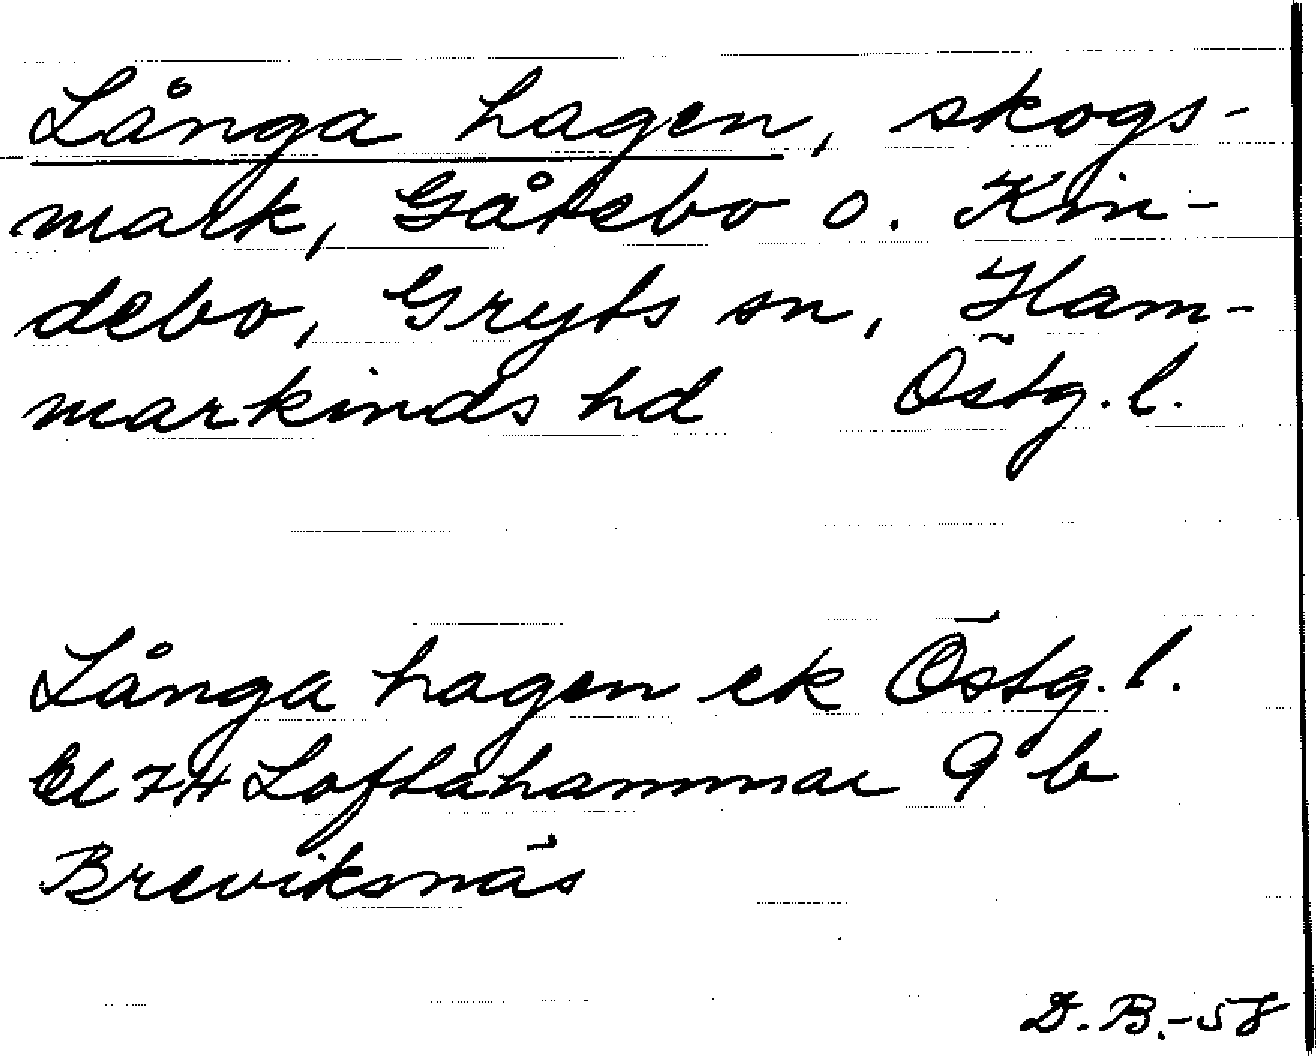 Långa hagen, skogs-
mark, Gåtebo o. Kin-
debo, Gryts sn, Ham-
markinds hd Östg. l.
Långa hagen ek Östg. l.
74 Loftahammar 9 b
Breviksnäs
D. B.-58